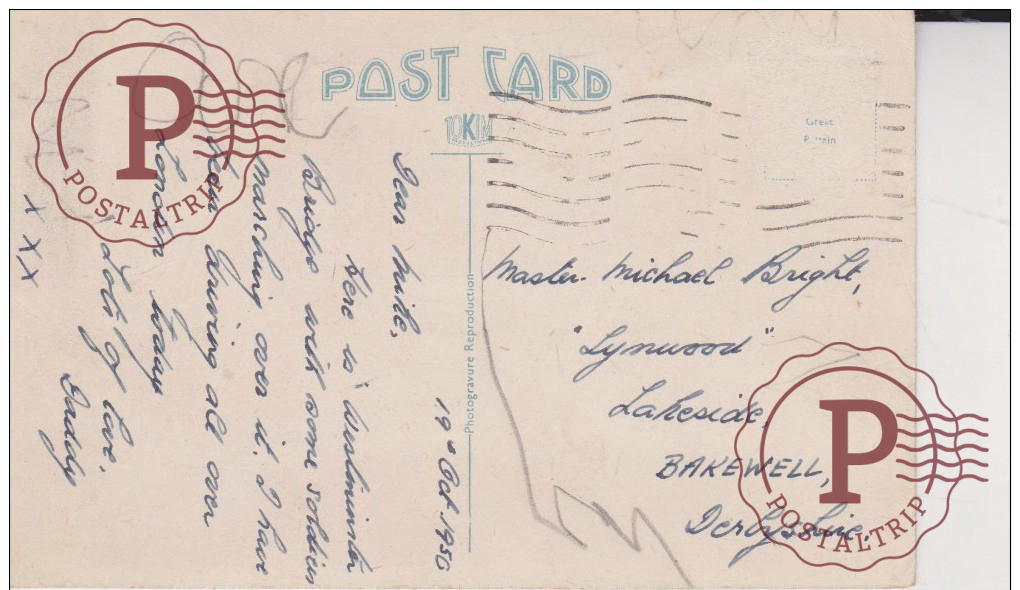 POST CARD
TOKIM
Great
Britain
19th Oct. 1950
Dear Mike,
Here is Westminster
Bridge with some soldiers
marching over it. I have
been driving all over
London today
Lots of love.
Daddy
X X X
Photogravure Reproduction
Master. Michael Bright,
"Lynwood"
Lakeside,
BAKEWELL,
Derbyshire.
P
POSTALTRIP
P
POSTALTRIP